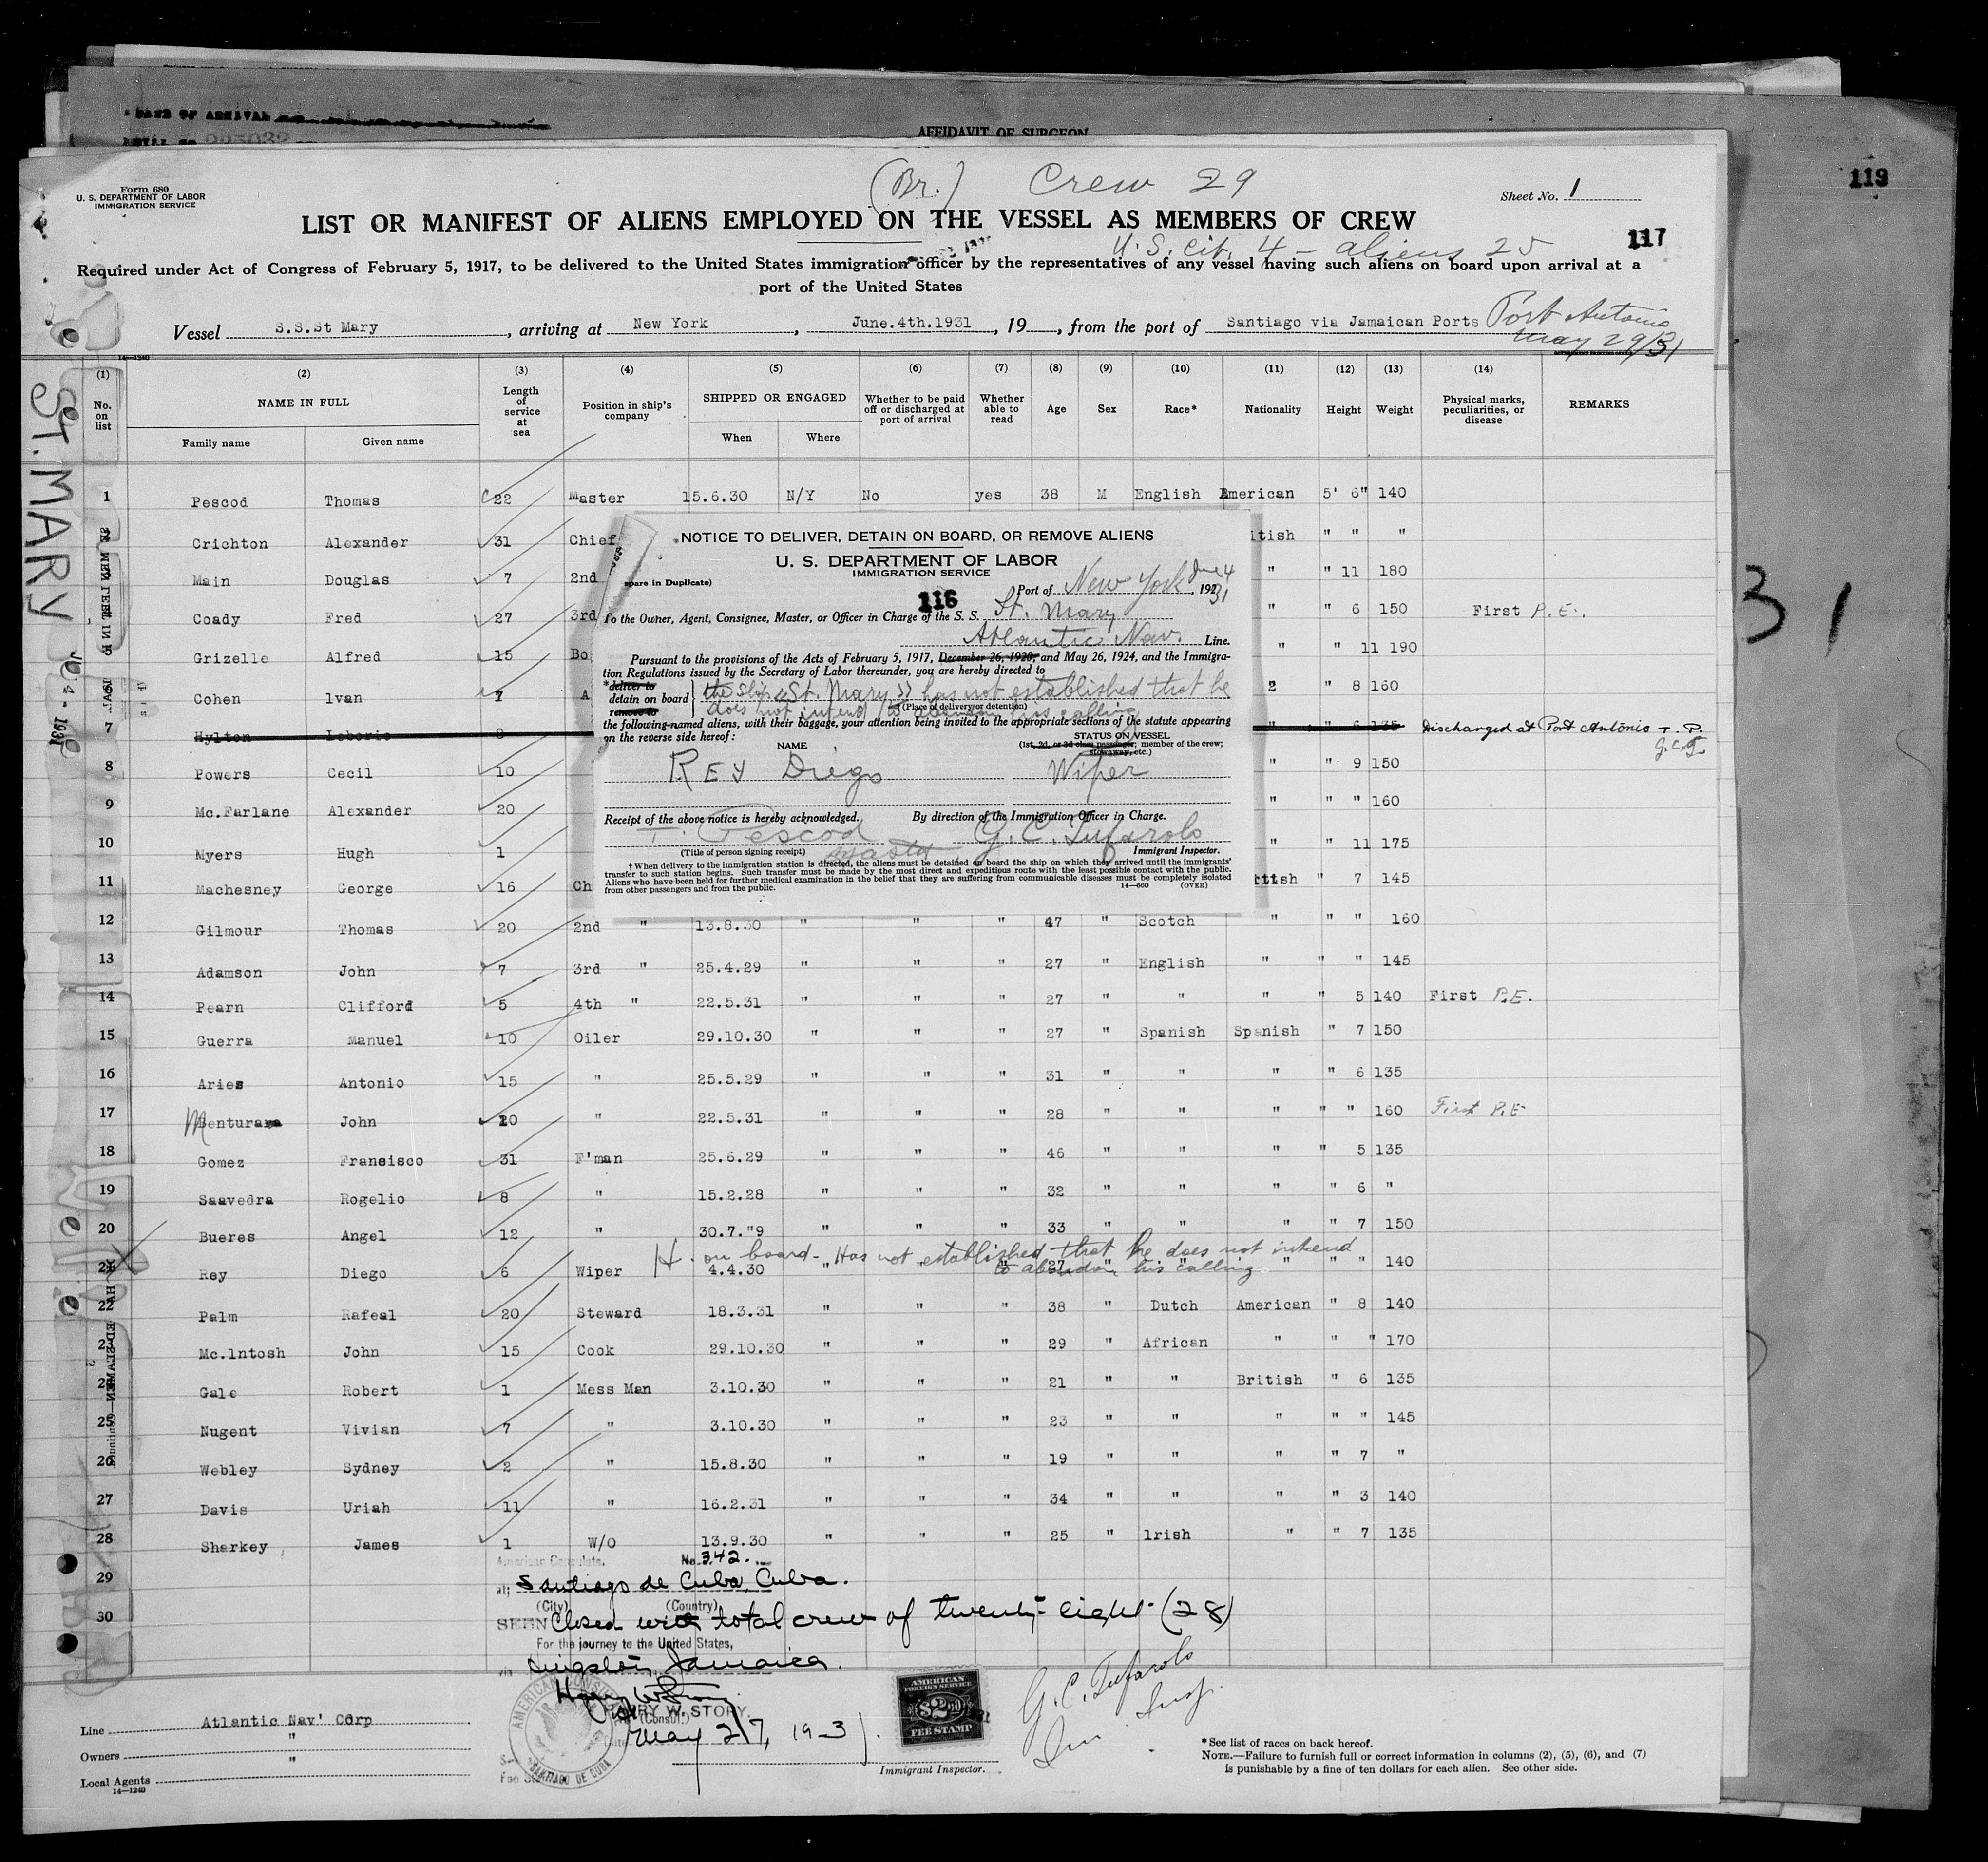 DATE OF ARRIVAL
AFFIDAVIT OF SURGEON
119
Form 680
U. S. DEPARTMENT OF LABOR
IMMIGRATION SERVICE
(Br.) Crew 29
Sheet No. 1
LIST OR MANIFEST OF ALIENS EMPLOYED ON THE VESSEL AS MEMBERS OF CREW
U.S. Cit. 4 - aliens 25
117
Required under Act of Congress of February 5, 1917, to be delivered to the United States immigration officer by the representatives of any vessel having such aliens on board upon arrival at a
port of the United States
Vessel S.S.St Mary, arriving at New York, June.4th.1931, 19, from the port of Santiago via Jamaican Ports Port Antonio
May 29/31
14—1240
ST. MARY
(1) (2) (3) (4) (5) (6) (7) (8) (9) (10) (11) (12) (13) (14)
No. on list NAME IN FULL Length of service at sea Position in ship's company SHIPPED OR ENGAGED Whether to be paid off or discharged at port of arrival Whether able to read Age Sex Race* Nationality Height Weight Physical marks, peculiarities, or disease REMARKS
Family name Given name When Where
1 Pescod Thomas 22 Master 15.6.30 N/Y No yes 38 M English American 5' 6" 140
2 Crichton Alexander 31 Chief itish " " "
3 Main Douglas 7 2nd " " 11 180
4 Coady Fred 27 3rd " " 6 150 First P.E.
5 Grizelle Alfred 15 Bo " 11 190
6 Cohen lvan 7 A " 8 160
7 Hylton Leborie 8 " " 6 135 Discharged at Port Antonio T. P.
G.C.T.
8 Powers Cecil 10 " " 9 150
9 Mc.Farlane Alexander 20 " " " 160
10 Myers Hugh 1 " " 11 175
11 Machesney George 16 Ch ttish " 7 145
12 Gilmour Thomas 20 2nd " 13.8.30 " " " 47 " Scotch " " " 160
13 Adamson John 7 3rd " 25.4.29 " " " 27 " English " " " 145
14 Pearn Clifford 5 4th " 22.5.31 " " " 27 " " " " 5 140 First P.E.
15 Guerra Manuel 10 Oiler 29.10.30 " " " 27 " Spanish Spanish " 7 150
16 Aries Antonio 15 " 25.5.29 " " " 31 " " " " 6 135
17 Menturara John 20 " 22.5.31 " " " 28 " " " " " 160 First P.E.
18 Gomez Fransisco 31 F'man 25.6.29 " " " 46 " " " " 5 135
19 Saavedra Rogelio 8 " 15.2.28 " " " 32 " " " " 6 "
20 Bueres Angel 12 " 30.7."9 " " " 33 " " " " 7 150
H. on board - Has not established that he does not intend
to abandon his calling
21 Rey Diego 6 Wiper 4.4.30 " " " 27 " " " " " 140
22 Palm Rafeal 20 Steward 18.3.31 " " " 38 " Dutch American " 8 140
23 Mc.lntosh John 15 Cook 29.10.30 " " " 29 " African " " " 170
24 Gale Robert 1 Mess Man 3.10.30 " " " 21 " " British " 6 135
25 Nugent Vivian 7 " 3.10.30 " " " 23 " " " " " 145
26 Webley Sydney 2 " 15.8.30 " " " 19 " " " " 7 "
27 Davis Uriah 11 " 16.2.31 " " " 34 " " " " 3 140
28 Sharkey James 1 W/O 13.9.30 " " " 25 " lrish " " 7 135
29
30
NOTICE TO DELIVER, DETAIN ON BOARD, OR REMOVE ALIENS
U. S. DEPARTMENT OF LABOR
IMMIGRATION SERVICE
pare in Duplicate)
Port of New York June 4, 1931
116
To the Owner, Agent, Consignee, Master, or Officer in Charge of the S. S. St. Mary
Atlantic Nav. Line.
Pursuant to the provisions of the Acts of February 5, 1917, December 26, 1920, and May 26, 1924, and the Immigra-
tion Regulations issued by the Secretary of Labor thereunder, you are hereby directed to
*deliver to
detain on board
remove to
the ship "St. Mary" has not established that he
does not intend to abandon his calling
(Place of delivery or detention)
the following-named aliens, with their baggage, your attention being invited to the appropriate sections of the statute appearing
on the reverse side hereof:
NAME
STATUS ON VESSEL
(1st, 2d, or 3d class passenger; member of the crew;
stowaway, etc.)
REY Diego Wiper
Receipt of the above notice is hereby acknowledged.
By direction of the Immigration Officer in Charge.
T. Pescod
Master
G. C. Tufarolo
(Title of person signing receipt)
Immigrant Inspector.
†When delivery to the immigration station is directed, the aliens must be detained on board the ship on which they arrived until the immigrants'
transfer to such station begins. Such transfer must be made by the most direct and expeditious route with the least possible contact with the public.
Aliens who have been held for further medical examination in the belief that they are suffering from communicable diseases must be completely isolated
from other passengers and from the public.
14—600 (OVER)
31
American Consulate, No. 342.
at; Santiago de Cuba, Cuba.
(City) (Country)
SEEN Closed with total crew of twenty-eight (28)
For the journey to the United States,
via Kingston, Jamaica.
HARRY W. STORY.
(Consul.)
May 27, 1931.
AMERICAN CONSUL
SANTIAGO DE CUBA
AMERICAN
FOREIGN SERVICE
$2.00
FEE STAMP
G. C. Tufarolo
Im. Insp.
Immigrant Inspector.
Line Atlantic Nav' Corp
Owners "
Local Agents "
14—1240
*See list of races on back hereof.
NOTE.—Failure to furnish full or correct information in columns (2), (5), (6), and (7)
is punishable by a fine of ten dollars for each alien. See other side.